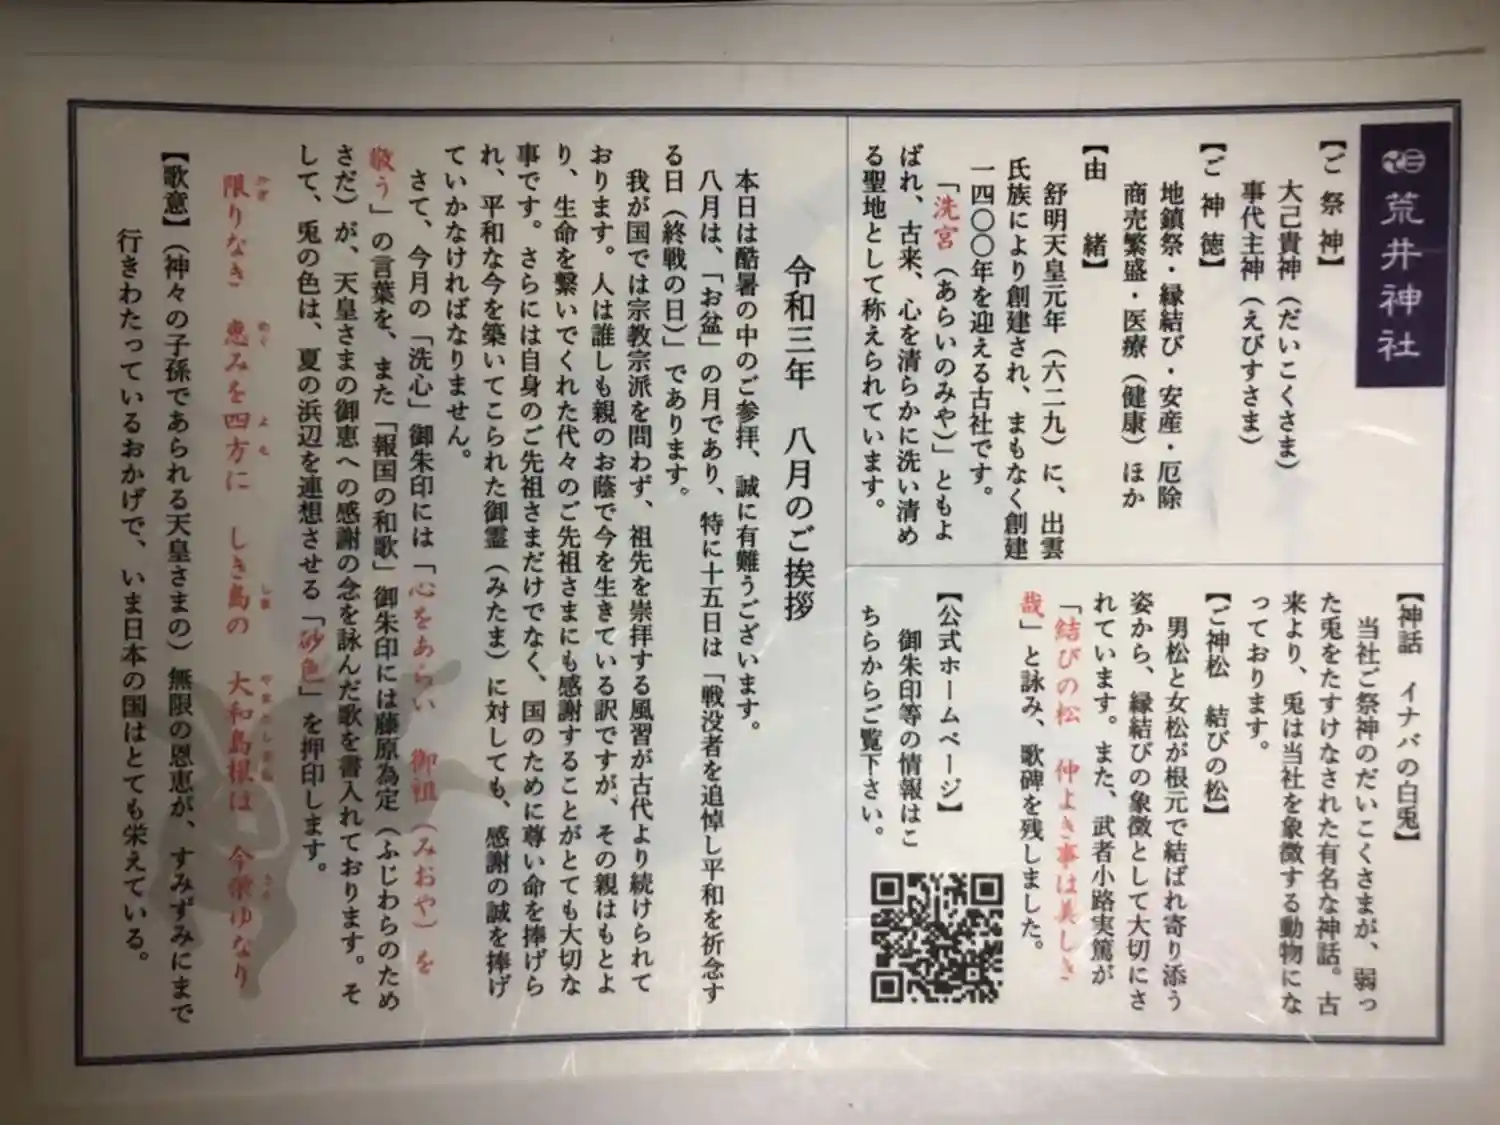 荒井神社
【ご祭神】
大己貴神（だいこくさま）
事代主神（えびすさま）
【ご神徳】
地鎮祭・縁結び・安産・厄除
商売繁盛・医療（健康）ほか
【由　緒】
舒明天皇元年（六二九）に、出雲
氏族により創建され、まもなく創建
一四〇〇年を迎える古社です。
「洗宮（あらいのみや）」ともよ
ばれ、古来、心を清らかに洗い清め
る聖地として称えられています。
【神話　イナバの白兎】
当社ご祭神のだいこくさまが、弱っ
た兎をたすけなされた有名な神話。古
来より、兎は当社を象徴する動物にな
っております。
【ご神松　結びの松】
男松と女松が根元で結ばれ寄り添う
姿から、縁結びの象徴として大切にさ
れています。また、武者小路実篤が
「結びの松　仲よき事は美しき
哉」と詠み、歌碑を残しました。
【公式ホームページ】
御朱印等の情報はこ
ちらからご覧下さい。
令和三年　八月のご挨拶
本日は酷暑の中のご参拝、誠に有難うございます。
八月は、「お盆」の月であり、特に十五日は「戦没者を追悼し平和を祈念す
る日（終戦の日）」であります。
我が国では宗教宗派を問わず、祖先を崇拝する風習が古代より続けられて
おります。人は誰しも親のお蔭で今を生きている訳ですが、その親はもとよ
り、生命を繋いでくれた代々のご先祖さまにも感謝することがとても大切な
事です。さらには自身のご先祖さまだけでなく、国のために尊い命を捧げら
れ、平和な今を築いてこられた御霊（みたま）に対しても、感謝の誠を捧げ
ていかなければなりません。
さて、今月の「洗心」御朱印には「心をあらい　御祖（みおや）を
敬う」の言葉を、また「報国の和歌」御朱印には藤原為定（ふじわらのため
さだ）が、天皇さまの御恵への感謝の念を詠んだ歌を書入れております。そ
して、兎の色は、夏の浜辺を連想させる「砂色」を押印します。
限りなき　恵みを四方に　しき島の　大和島根は　今栄ゆなり
【歌意】（神々の子孫であられる天皇さまの）無限の恩恵が、すみずみにまで
行きわたっているおかげで、いま日本の国はとても栄えている。